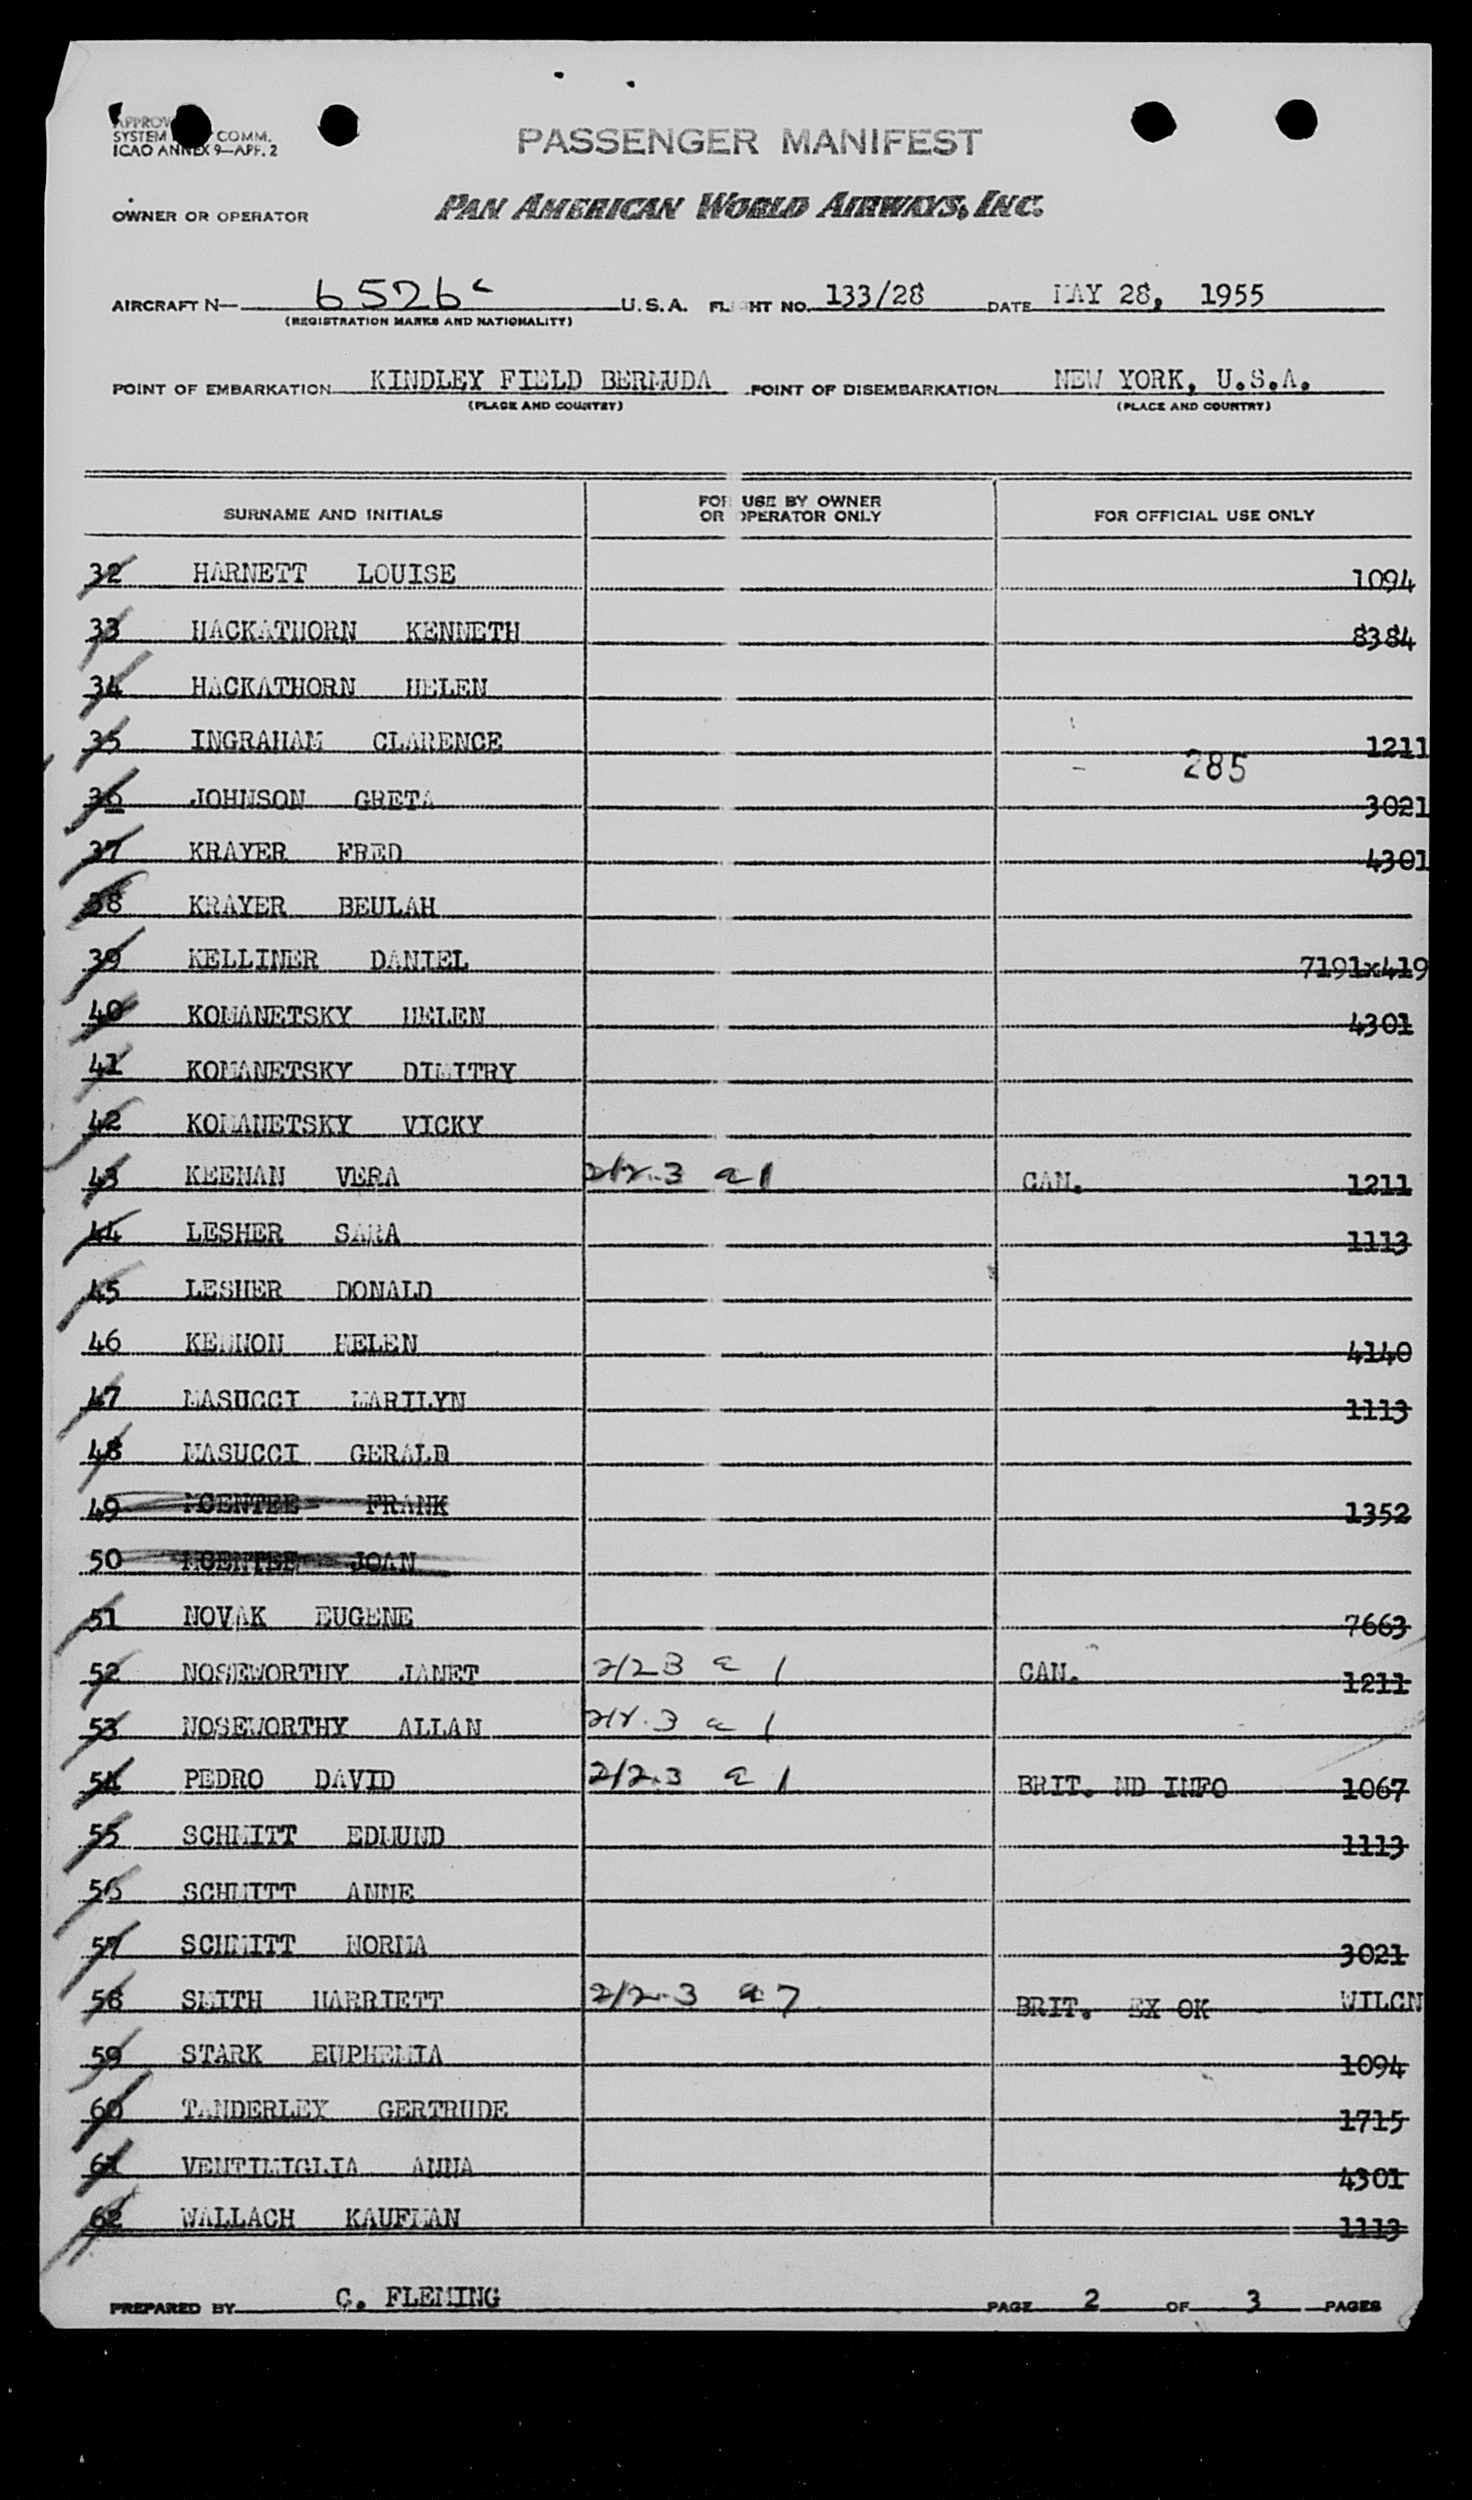 APPROV
SYSTEM COMM.
ICAO ANNEX 9—APP. 2
PASSENGER MANIFEST
OWNER OR OPERATOR PAN AMERICAN WORLD AIRWAYS, INC.
AIRCRAFT N— 6526c U.S.A. FLIGHT NO. 133/28 DATE MAY 28, 1955
(REGISTRATION MARKS AND NATIONALITY)
POINT OF EMBARKATION KINDLEY FIELD BERMUDA POINT OF DISEMBARKATION NEW YORK, U.S.A.
(PLACE AND COUNTRY) (PLACE AND COUNTRY)
SURNAME AND INITIALS FOR USE BY OWNER OR OPERATOR ONLY FOR OFFICIAL USE ONLY
32 HARNETT LOUISE 1094
33 HACKATHORN KENNETH 8384
34 HACKATHORN HELEN
35 INGRAHAM CLARENCE 1211
285
36 JOHNSON GRETA 3021
37 KRAYER FRED 4301
38 KRAYER BEULAH
39 KELLINER DANIEL 7191x419
40 KOMANETSKY HELEN 4301
41 KOMANETSKY DIMITRY
42 KOMANETSKY VICKY
43 KEENAN VERA 212.3 a 1 CAN. 1211
44 LESHER SARA 1113
45 LESHER DONALD
46 KENNON HELEN 4140
47 MASUCCI MARILYN 1113
48 MASUCCI GERALD
49 MCENTEE FRANK 1352
50 MCENTEE JOAN
51 NOVAK EUGENE 7663
52 NOSEWORTHY JANET 212 3 a 1 CAN. 1211
53 NOSEWORTHY ALLAN 212.3 a 1
54 PEDRO DAVID 212.3 a 1 BRIT. ND INFO 1067
55 SCHMITT EDMUND 1113
56 SCHMITT ANNE
57 SCHMITT NORMA 3021
58 SMITH HARRIETT 212.3 a 7 BRIT. EX OK WILCN
59 STARK EUPHEMIA 1094
60 TANDERLEY GERTRUDE 1715
61 VENTIMIGLIA ANNA 4301
62 WALLACH KAUFMAN 1113
PREPARED BY C. FLEMING PAGE 2 OF 3 PAGES